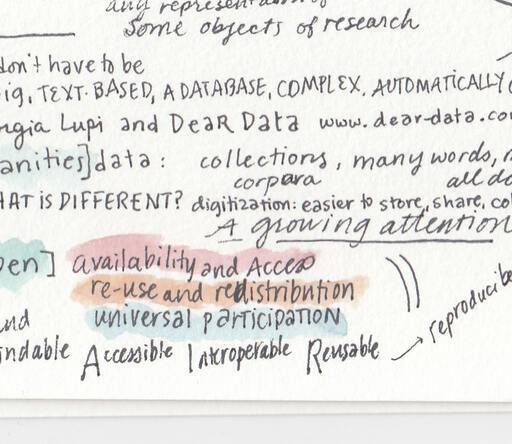 any representation of
Some objects of research
don't have to be
ig, TEXT-BASED, A DATABASE, COMPLEX, AUTOMATICALLY
rgia Lupi and DEAR DATA www.dear-data.co
anities] data: collections, many words,
corpora all do
HAT IS DIFFERENT? digitization: easier to store, share, co
A growing attention
pen] availability and Access
re-use and redistribution
universal participation
nd
ndable Accessible Interoperable Reusable
reproducibe